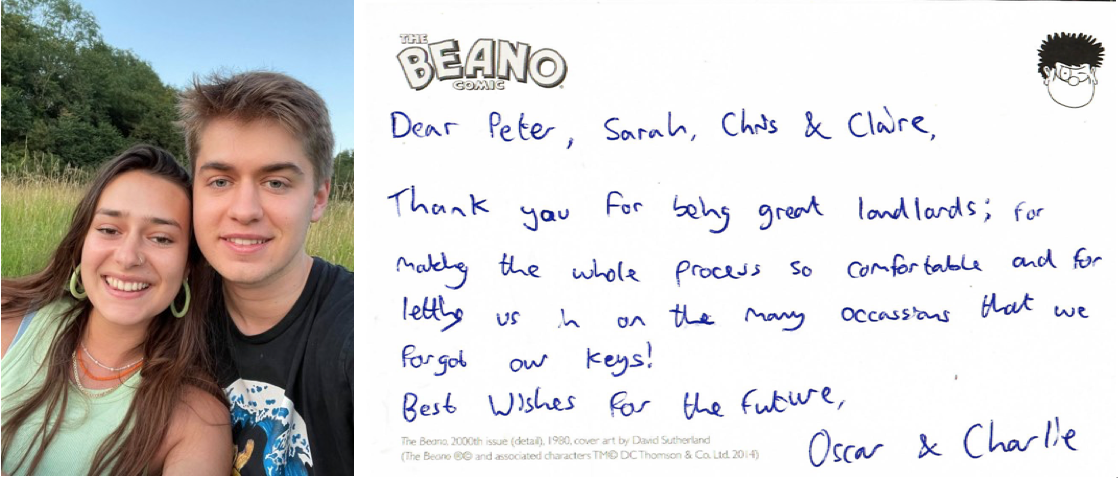 THE
BEANO
COMIC
Dear Peter, Sarah, Chris & Claire,
Thank you for being great landlords; for
making the whole process so comfortable and for
letting us in on the many occassions that we
forgot our keys!
Best Wishes for the future,
The Beano, 2000th issue (detail), 1980, cover art by David Sutherland
(The Beano ®© and associated characters TM© DC Thomson & Co. Ltd. 2014)
Oscar & Charlie